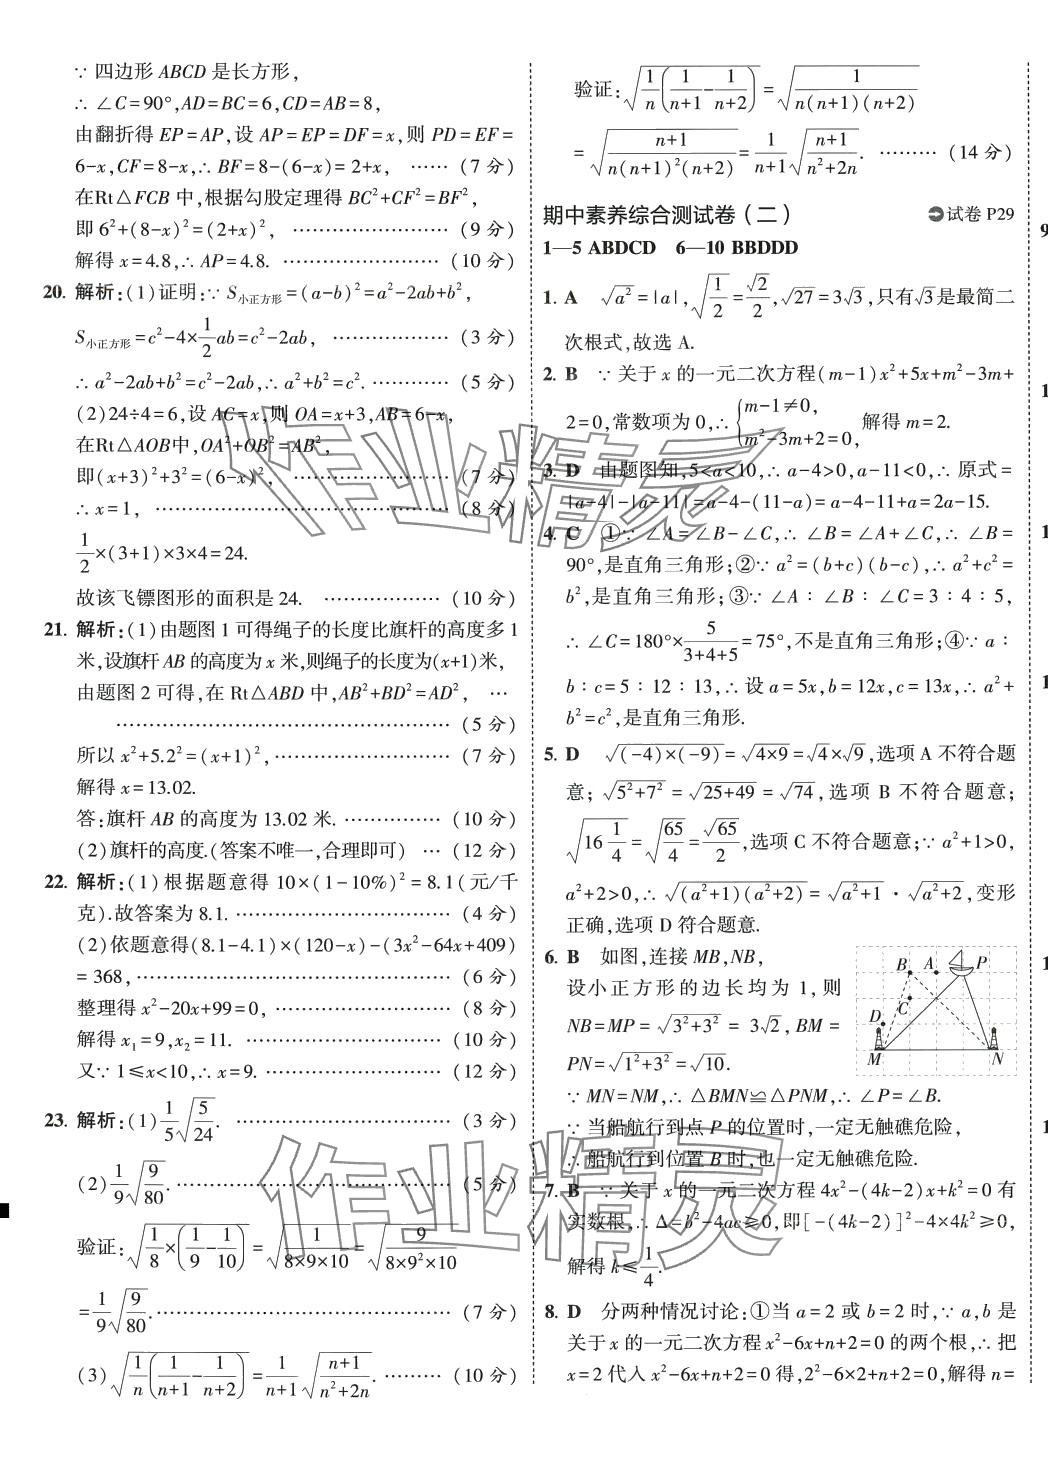 ∵ 四边形 ABCD 是长方形,
∴ ∠C=90°,AD=BC=6,CD=AB=8,
由翻折得 EP=AP,设 AP=EP=DF=x,则 PD=EF=
6-x,CF=8-x,∴ BF=8-(6-x)=2+x, …… (7 分)
在Rt△FCB 中,根据勾股定理得 BC²+CF²=BF²,
即 6²+(8-x)²=(2+x)², …………………… (9 分)
解得 x=4.8,∴ AP=4.8. …………………… (10 分)
20. 解析:(1)证明:∵ S小正方形=(a-b)²=a²-2ab+b²,
S小正方形=c²-4×1/2ab=c²-2ab, ……………… (3 分)
∴ a²-2ab+b²=c²-2ab,∴ a²+b²=c². ………… (5 分)
(2)24÷4=6,设 AC=x,则 OA=x+3,AB=6-x,
在Rt△AOB中,OA²+OB²=AB²,
即(x+3)²+3²=(6-x)², …………………… (7 分)
∴ x=1, ……………………………………… (8 分)
1/2×(3+1)×3×4=24.
故该飞镖图形的面积是 24. ……………… (10 分)
21. 解析:(1)由题图 1 可得绳子的长度比旗杆的高度多 1
米,设旗杆 AB 的高度为 x 米,则绳子的长度为(x+1)米,
由题图 2 可得,在 Rt△ABD 中,AB²+BD²=AD², …
…………………………………………… (5 分)
所以 x²+5.2²=(x+1)², ……………………… (7 分)
解得 x=13.02.
答:旗杆 AB 的高度为 13.02 米. …………… (10 分)
(2)旗杆的高度.(答案不唯一,合理即可) … (12 分)
22. 解析:(1)根据题意得 10×(1-10%)²=8.1(元/千
克).故答案为 8.1. …………………………… (4 分)
(2)依题意得(8.1-4.1)×(120-x)-(3x²-64x+409)
=368, ………………………………………… (6 分)
整理得 x²-20x+99=0, ……………………… (8 分)
解得 x₁=9,x₂=11. ………………………… (10 分)
又∵ 1≤x<10,∴ x=9. ……………………… (12 分)
23. 解析:(1)1/5√(5/24). …………………………… (3 分)
(2)1/9√(9/80). …………………………………… (5 分)
验证:√(1/8×(1/9-1/10))=√(1/(8×9×10))=√(9/(8×9²×10))
=1/9√(9/80). ……………………………………… (7 分)
(3)√(1/n(1/(n+1)-1/(n+2)))=1/(n+1)√((n+1)/(n²+2n)). ……… (10 分)
验证:√(1/n(1/(n+1)-1/(n+2)))=√(1/(n(n+1)(n+2)))
=√((n+1)/(n(n+1)²(n+2)))=1/(n+1)√((n+1)/(n²+2n)). ……… (14 分)
期中素养综合测试卷(二) 试卷 P29
1—5 ABDCD 6—10 BBDDD
1. A √(a²)=|a|,√(1/2)=√2/2,√27=3√3,只有√3是最简二
次根式,故选 A.
2. B ∵ 关于 x 的一元二次方程(m-1)x²+5x+m²-3m+
2=0,常数项为 0,∴ {m-1≠0, m²-3m+2=0, 解得 m=2.
3. D 由题图知,5<a<10,∴ a-4>0,a-11<0,∴ 原式=
|a-4|-|a-11|=a-4-(11-a)=a-4-11+a=2a-15.
4. C ①∵ ∠A=∠B-∠C,∴ ∠B=∠A+∠C,∴ ∠B=
90°,是直角三角形;②∵ a²=(b+c)(b-c),∴ a²+c²=
b²,是直角三角形;③∵ ∠A∶∠B∶∠C=3∶4∶5,
∴ ∠C=180°×5/(3+4+5)=75°,不是直角三角形;④∵ a∶
b∶c=5∶12∶13,∴ 设 a=5x,b=12x,c=13x,∴ a²+
b²=c²,是直角三角形.
5. D √((-4)×(-9))=√(4×9)=√4×√9,选项 A 不符合题
意;√(5²+7²)=√(25+49)=√74,选项 B 不符合题意;
√(16 1/4)=√(65/4)=√65/2,选项 C 不符合题意;∵ a²+1>0,
a²+2>0,∴ √((a²+1)(a²+2))=√(a²+1)·√(a²+2),变形
正确,选项 D 符合题意.
6. B 如图,连接 MB,NB,
设小正方形的边长均为 1,则
NB=MP=√(3²+3²)=3√2,BM=
PN=√(1²+3²)=√10.
B A P
C
D
M N
∵ MN=NM,∴ △BMN≌△PNM,∴ ∠P=∠B.
∵ 当船航行到点 P 的位置时,一定无触礁危险,
∴ 船航行到位置 B 时,也一定无触礁危险.
7. B ∵ 关于 x 的一元二次方程 4x²-(4k-2)x+k²=0 有
实数根,∴ Δ=b²-4ac≥0,即[-(4k-2)]²-4×4k²≥0,
解得 k≤1/4.
8. D 分两种情况讨论:①当 a=2 或 b=2 时,∵ a,b 是
关于 x 的一元二次方程 x²-6x+n+2=0 的两个根,∴ 把
x=2 代入 x²-6x+n+2=0 得,2²-6×2+n+2=0,解得 n=
作业精灵
作业精灵